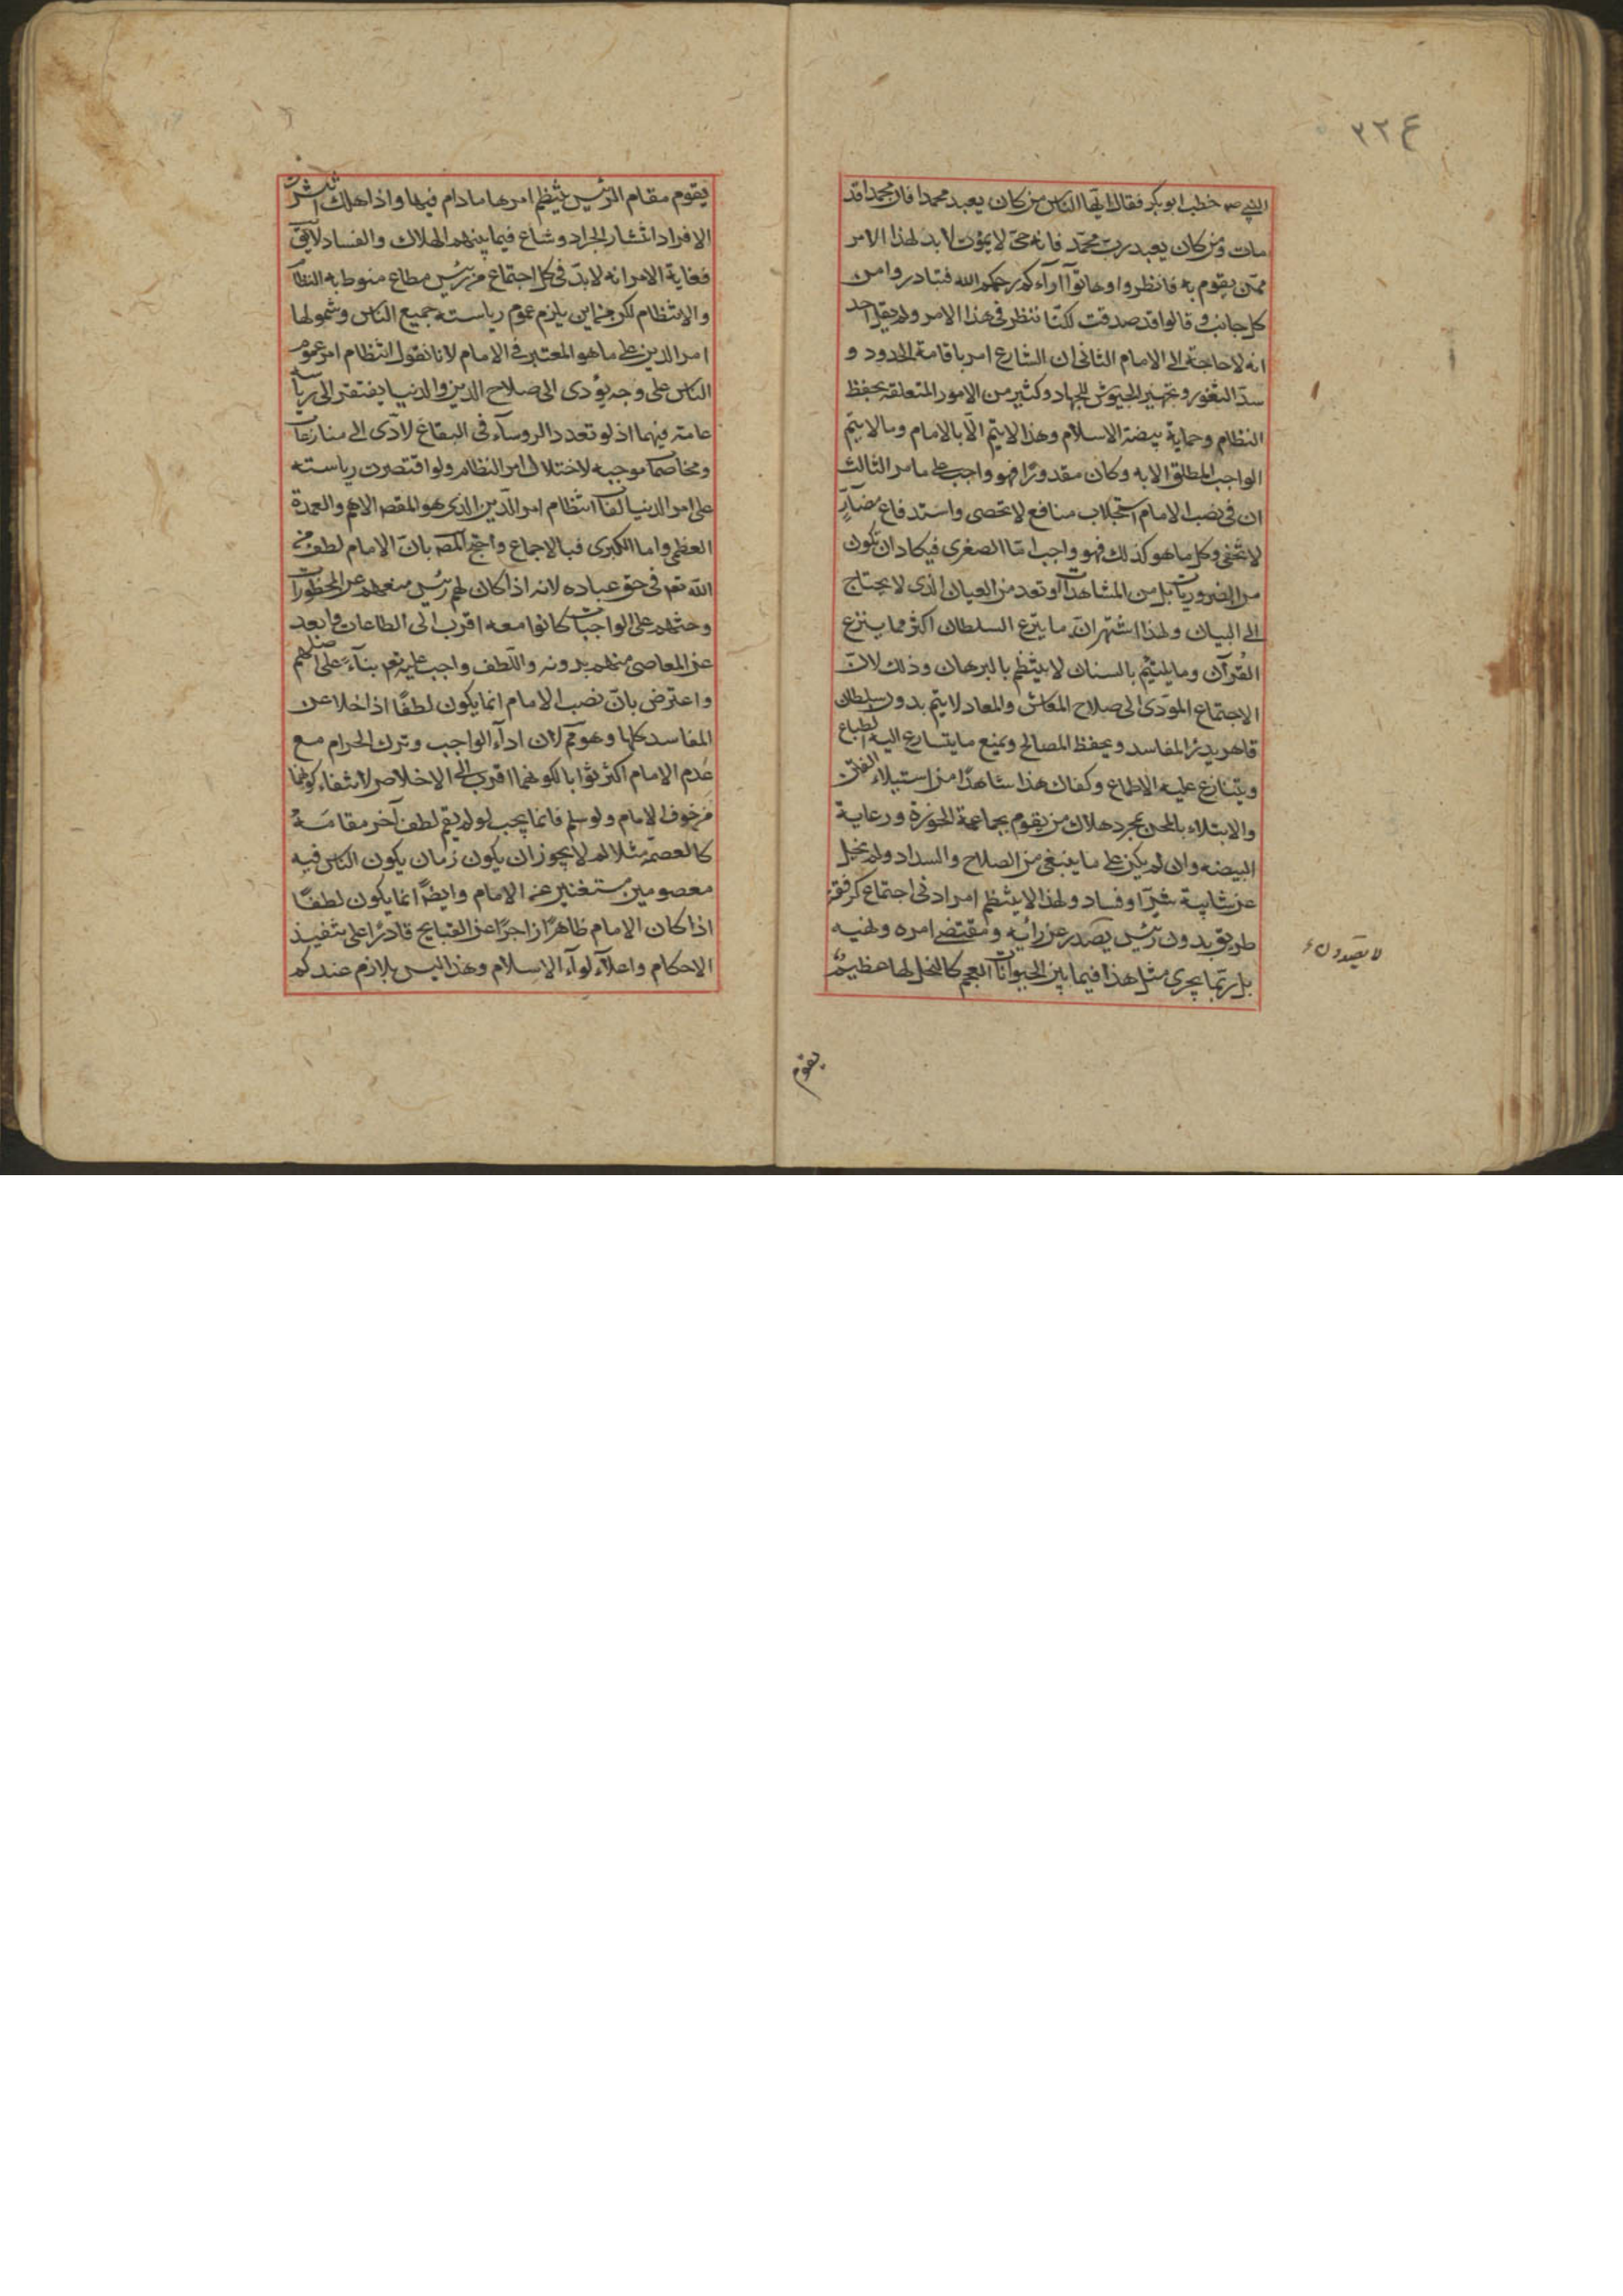 ٣٢٤
النبي ص خطب ابو بكر فقال ايها الناس من كان يعبد محمدا فان محمدا قد
مات ومن كان يعبد رب محمّد فانه حى لا يموت لا بد لهذا الامر
ممّن يقوم به فانظروا وهاتوا آراءكم رحمكم الله فتبادروا من
كل جانب و قالوا قد صدقت لكنّا ننظر فى هذا الامر ولم يقل احد
انه لا حاجة الى الامام الثانى ان الشارع امر باقامة الحدود و
سدّ الثغور و تجهيز الجيوش للجهاد وكثير من الامور المتعلقة بحفظ
النظام وحماية بيضة الاسلام وهذا لا يتم الّا بالامام وما لا يتم
الواجب المطلق الا به وكان مقدورًا فهو واجب على ما مر الثالث
ان فى نصب الامام استجلاب منافع لا تحصى واستدفاع مضارّ
لا تخفى وكل ما هو كذلك فهو واجب امّا الصغرى فيكاد ان تكون
من الضروريات بل من المشاهدات او تعد من العيان الذى لا يحتاج
الى البيان ولهذا اشتهر انّ ما يزع السلطان اكثر مما ينزع
القُرآن وما يلتئم بالسنان لا ينتظم بالبرهان وذلك لانّ
الاجتماع المؤدى الى صلاح المعاش والمعاد لا يتم بدون سلطان
قاهر يدرئ المفاسد ويحفظ المصالح ويمنع ما يتسارع اليه الطباع
ويتنازع عليه الاطماع وكفاك هذا شاهدًا من استيلاء الفتن
والابتلاء بالمحن بمجرد هلاك من يقوم بحماية الحوزة ورعاية
البيضه وان لم يكن على ما ينبغى من الصلاح والسداد ولم يخل
عن شايبة شرّ او فساد ولهذا لا ينتظم امر اد فى اجتماع كرفقة
طريق بدون رئيس يصدر عن رائيه ومقتضى امره ونهيه
بل ربّما يجرى مثل هذا فيما بين الحيوانات العجم كالنحل لها عظيم
يقوم
يقوم مقام الرئيس ينتظم امرها ما دام فيها واذا هلك انتشرت
الافراد انتشار الجراد وشاع فيما بينهم الهلاك والفساد لا يق
فغاية الامر انه لا بدّ فى كل اجتماع من رئيس مطاع منوط به النظام
والانتظام لكن من اين يلزم عموم رياسته جميع الناس وشمولها
امر الدين على ما هو المعتبر فى الامام لانا نقول انتظام امر عموم
الناس على وجه يؤدى الى صلاح الدين والدنيا يفتقر الى رياسة
عامة فيهما اذ لو تعدد الروساء فى البقاع لادّى الى منازعات
ومخاصمات موجبه لاختلال امر النظام ولو اقتصرت رياسته
على امر الدنيا لفات انتظام امر الدّين الذى هو المقصد الاهم والعمدة
العظمى واما الكبرى فبالاجماع واحتج المص بانّ الامام لطف من
الله تع فى حق عباده لانه اذا كان لهم رئيس يمنعهم عن المحظورات
وحثهم على الواجبات كانوا معه اقرب الى الطاعات وابعد
عن المعاصى منهم بدونه واللّطف واجب عليه تع بناءً على اصلهم
واعترض بانّ نصب الامام انما يكون لطفًا اذا خلا عن
المفاسد كلها وهو مم لان اداء الواجب وترك الحرام مع
عَدم الامام اكثر ثوابا لكونهما اقرب الى الاخلاص لانتفاء كونهما
من خوف الامام ولو سلم فانما يجب لو لم يقم لطف آخر مقامَهُ
كالعصمة مثلا لم لا يجوز ان يكون زمان يكون الناس فيه
معصومين مستغنين عن الامام وايضًا انما يكون لطفًا
اذا كان الامام ظاهرًا زاجرًا عن القبايح قادرًا على تنفيذ
الاحكام واعلاء لواء الاسلام وهذا ليس بلازم عندكم